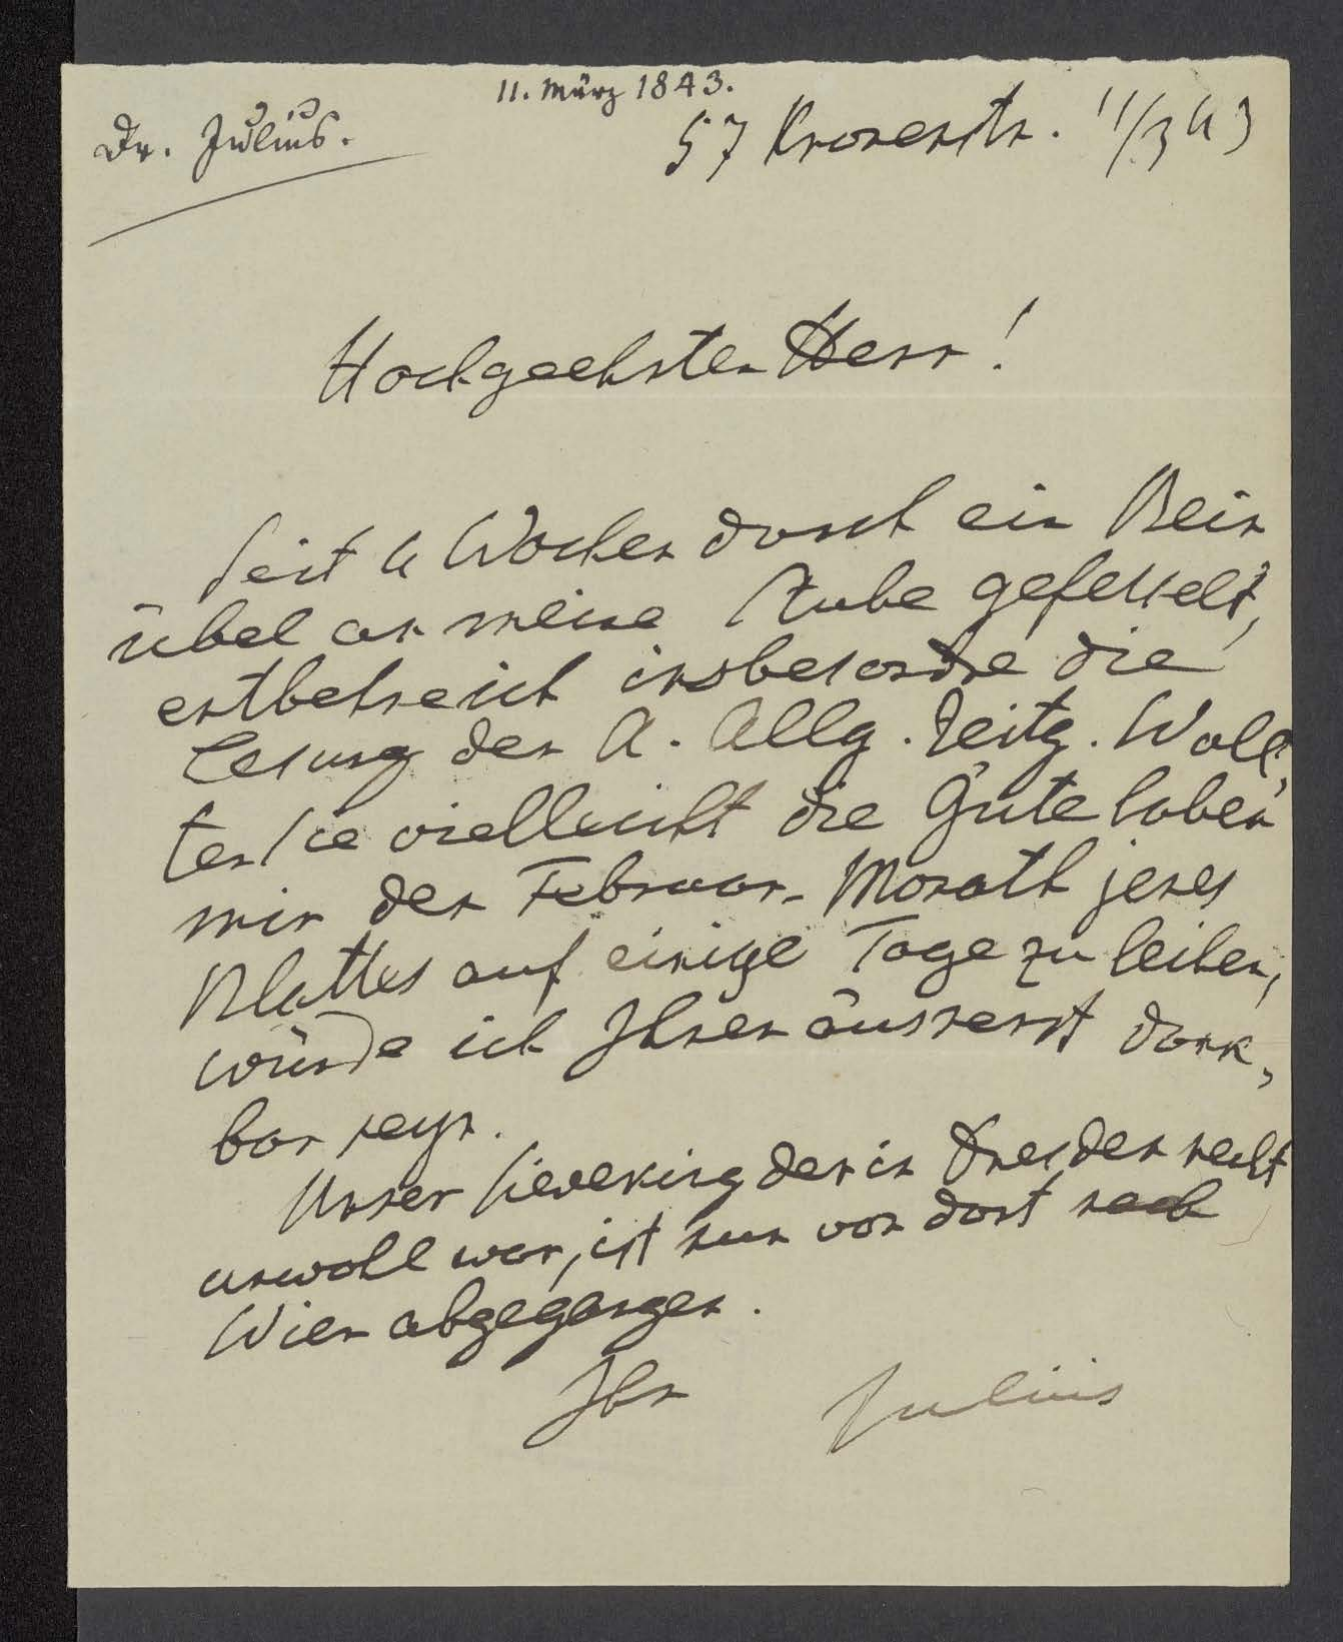 11. März 1843.
Dr. Julius.
57 Kronenstr. 11/3 43
Hochgeehrter Herr!
Seit 4 Wochen durch ein Bein
übel an meine Stube gefesselt,
entbehre ich insbesondre die
Lesung der A. Allg. Zeitg. Woll,
ten Sie vielleicht die Güte haben
mir den Februar-Monath jenes
Blattes auf einige Tage zu leihen,
würde ich Ihnen äusserst dank,
bar seyn.
Unser Sieveking der in Dresden recht
unwohl war, ist nun von dort nach
Wien abgegangen.
Ihr Julius